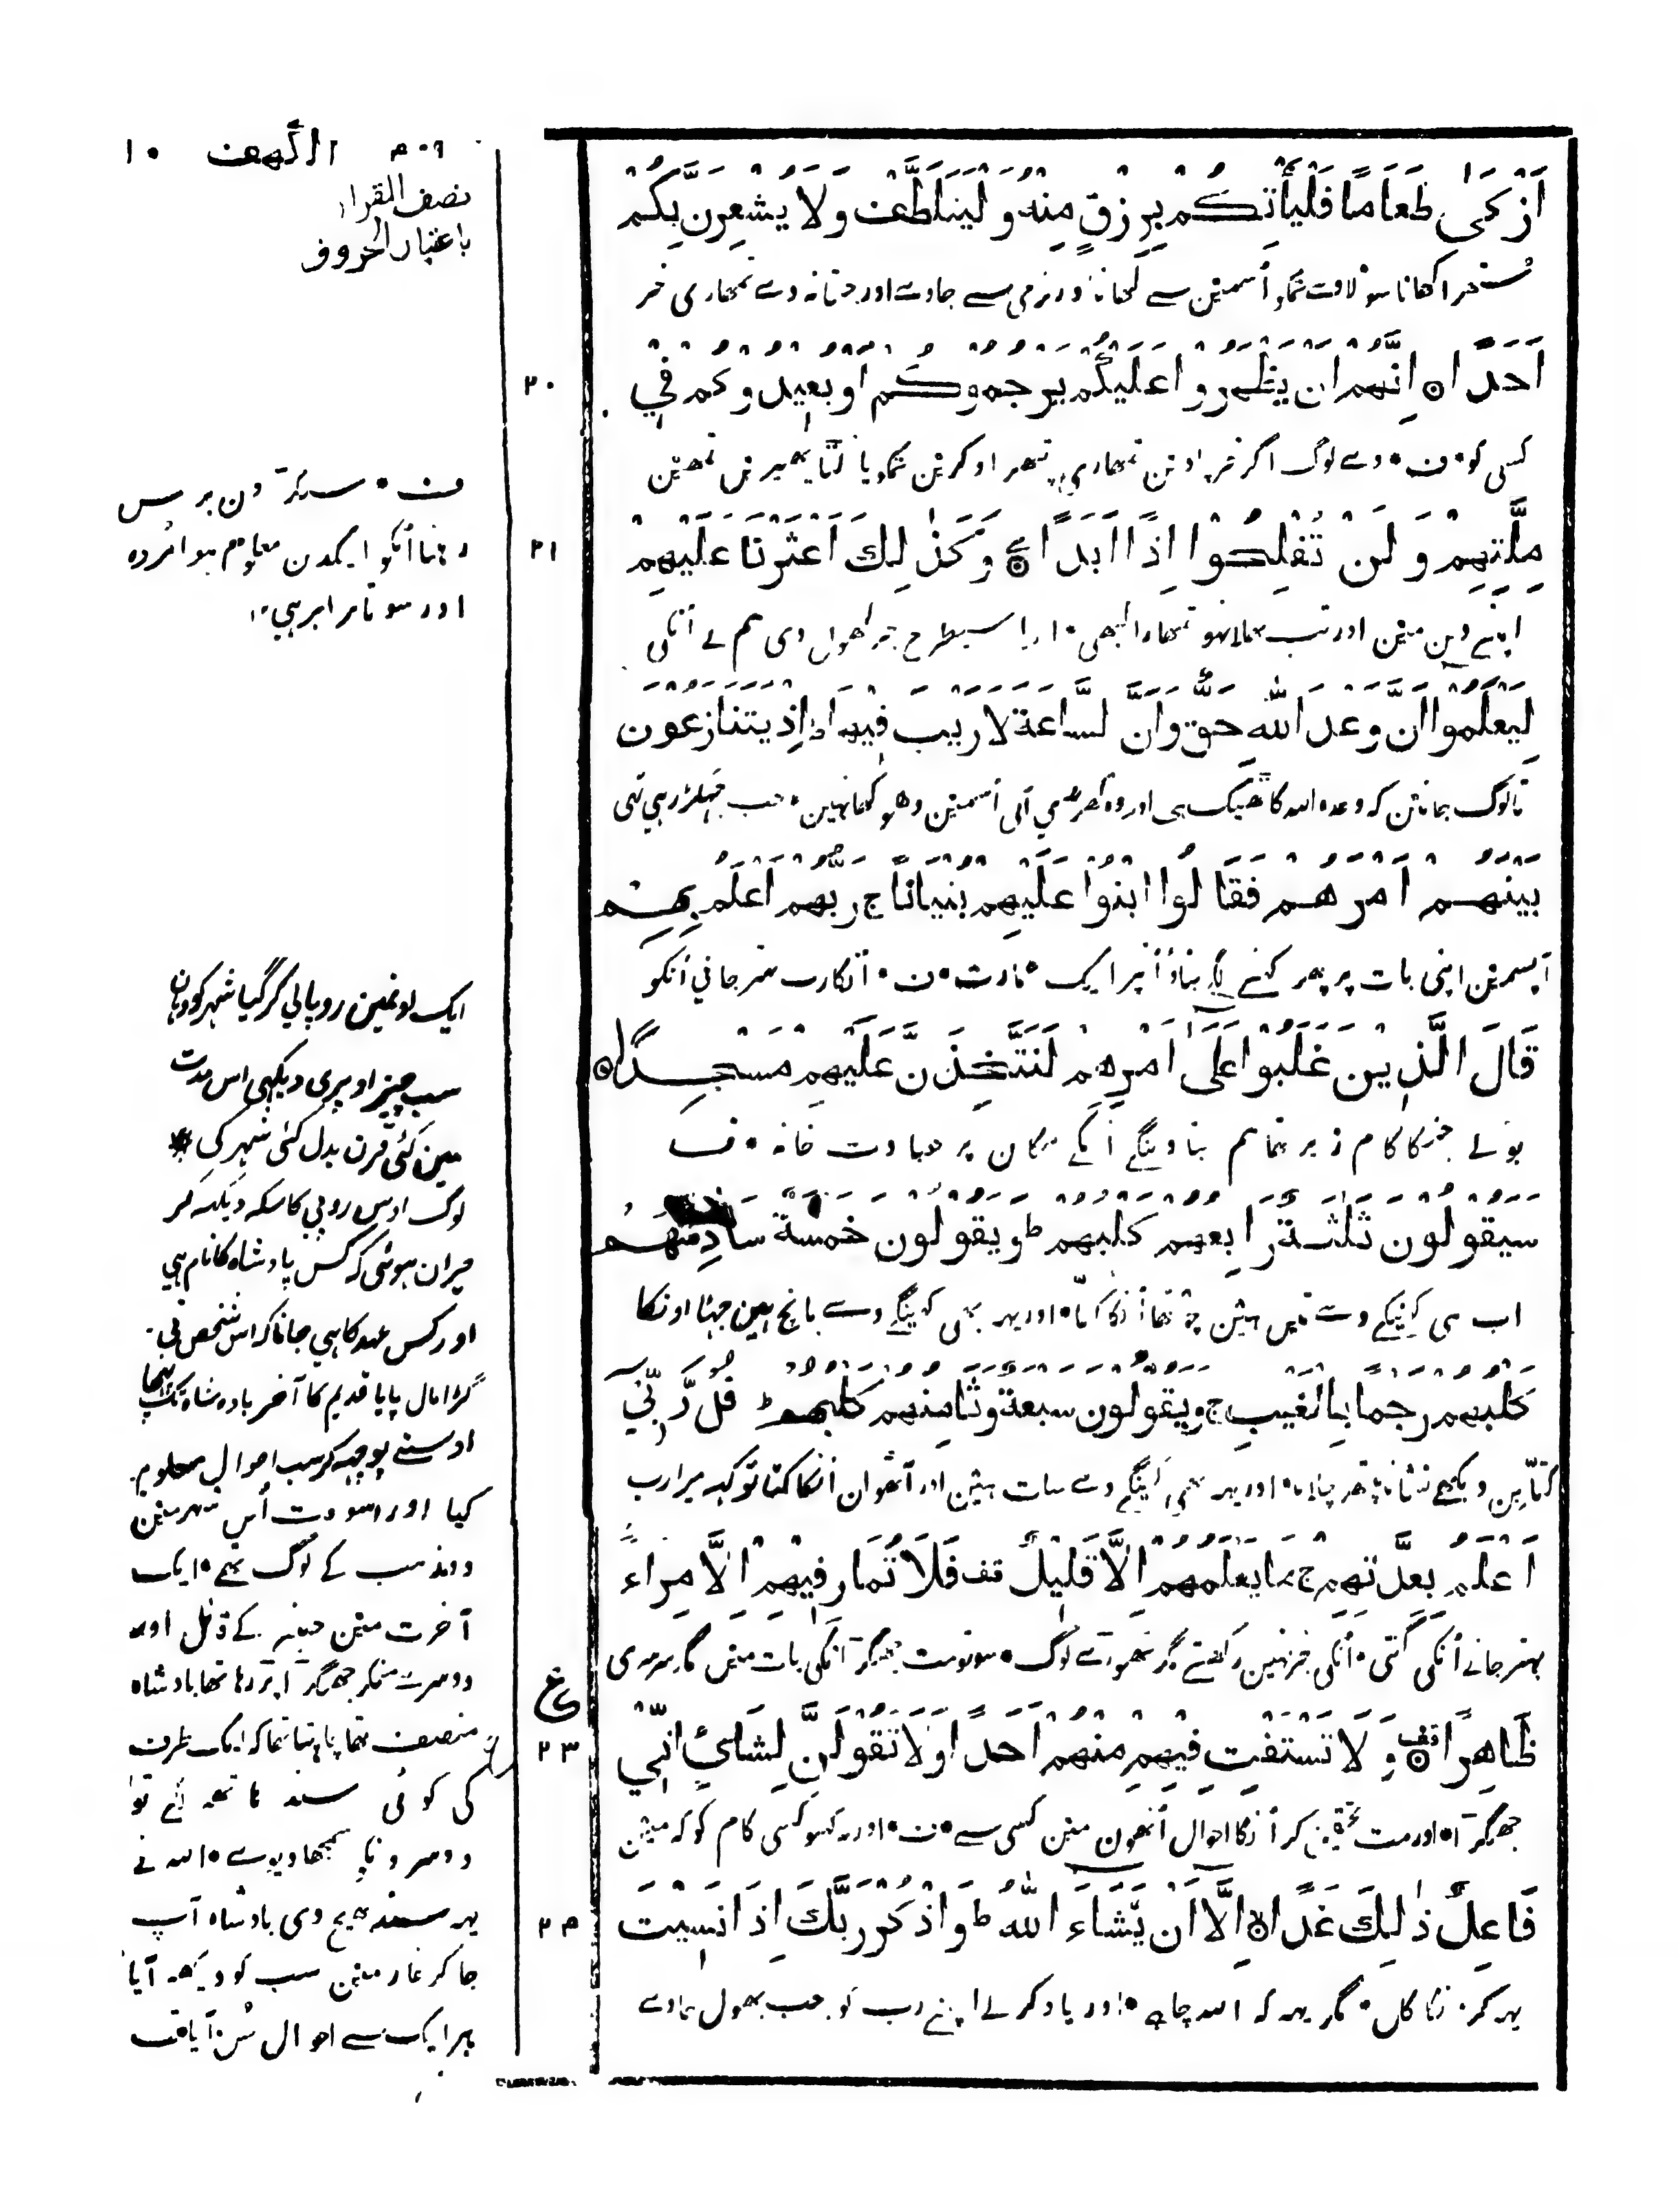 الكهف ١٠
نصف القران
باعتبار الحروف
اَزْكٰى طَعَامًا فَلْيَأْتِكُمْ بِرِزْقٍ مِنْهُ وَلْيَتَلَطَّفْ وَلَا يُشْعِرَنَّ بِكُمْ
ستهرا كهانا سو لاوے تمكو اُسمین سے كهانا اور نرمی سے جاوے اور جتا نه دے تمهاری خبر
اَحَدًا ۝ اِنَّهُمْ اِنْ يَظْهَرُوا عَلَيْكُمْ يَرْجُمُوكُمْ اَوْ يُعِيدُوكُمْ فِي
٢٠
كسی كو ف وے لوگ اگر خبر پاوین تمهاری پتهراو كرین تمكو یا الٹا پهیرین تمهین
مِلَّتِهِمْ وَلَنْ تُفْلِحُوْا اِذًا اَبَدًا ۝ وَكَذٰلِكَ اَعْثَرْنَا عَلَيْهِمْ
٢١
اپنے دین مین اور تب بهلا نهو تمهارا كبهی اور اسیطرح خبر كهول دی هم نے اُنكی
لِيَعْلَمُوْا اَنَّ وَعْدَ اللّٰهِ حَقٌّ وَاَنَّ السَّاعَةَ لَا رَيْبَ فِيْهَا ط اِذْ يَتَنَازَعُوْنَ
تا لوگ جانین كه وعده الله كا ٹهیك هی اور وه گهڑی آنی اُسمین دهوكها نهین جب جهگڑ رهی تهی
بَيْنَهُمْ اَمْرَهُمْ فَقَالُوا ابْنُوْا عَلَيْهِمْ بُنْيَانًا ج رَبُّهُمْ اَعْلَمُ بِهِمْ
آپسمین اپنی بات پر پهر كهنے لگے بناؤ اُنپر ایك عمارت ف اُنكا رب بهتر جانی اُنكو
قَالَ الَّذِيْنَ غَلَبُوْا عَلٰى اَمْرِهِمْ لَنَتَّخِذَنَّ عَلَيْهِمْ مَسْجِدًا ۝
بولے جنكا كام زبر تها هم بناوینگے اُنكے مكان پر عبادت خانه ف
سَيَقُوْلُوْنَ ثَلٰثَةٌ رَّابِعُهُمْ كَلْبُهُمْ ط وَيَقُوْلُوْنَ خَمْسَةٌ سَادِسُهُمْ
اب هی كهینگے وے تین هین چوتها اُنكا كتا اور یهه بهی كهینگے وے پانچ هین چهٹا اونكا
كَلْبُهُمْ رَجْمًا بِالْغَيْبِ ج وَيَقُوْلُوْنَ سَبْعَةٌ وَّثَامِنُهُمْ كَلْبُهُمْ ط قُلْ رَّبِّيْ
كتا بن دیكهے نشانا پتهر چلانا اور یهه بهی كهینگے وے سات هین اور آٹهوان اُنكا كتا تو كهه میرا رب
اَعْلَمُ بِعِدَّتِهِمْ ج مَا يَعْلَمُهُمْ اِلَّا قَلِيْلٌ قف فَلَا تُمَارِ فِيْهِمْ اِلَّا مِرَاءً
بهتر جانے اُنكی گنتی اُنكی خبر نهین ركهتے مگر تهوڑے لوگ سو تو مت جهگڑ اُنكی بات مین مگر سرسری
ظَاهِرًا ۝ وَلَا تَسْتَفْتِ فِيْهِمْ مِنْهُمْ اَحَدًا وَلَا تَقُوْلَنَّ لِشَايْءٍ اِنِّيْ
ع
٢٣
جهگڑا اور مت تحقیق كر اُنكا احوال اُنهون مین كسی سے ف اور نه كهیو كسی كام كو كه مین
فَاعِلٌ ذٰلِكَ غَدًا ۝ اِلَّا اَنْ يَّشَاءَ اللّٰهُ ط وَاذْكُرْ رَبَّكَ اِذَا نَسِيْتَ
٢٤
یهه كرونگا كل مگر یهه كه الله چاهے اور یاد كر لے اپنے رب كو جب بهول جاوے
برس
وهانا اُنكو ایكدن معلوم هوا مُرده
اور سونا برابر هی
ایك اونمین روپا لیكر گیا شهر كو وهان
سب چیز اوپری دیكهی اس مدت
مین كئی قرن بدل گئی شهر كی
لوگ اوس روپی كا سكه دیكهه كر
حیران هوئی كه كس پادشاه كا نام هی
اور كس عهد كا هی جانا كه اس شخص نی
گڑا مال پایا قدیم كا آخر بادشاه تك پهنچا
اوسنے پوچهه كر سب احوال معلوم
كیا اور اسوقت اُس شهر مین
دو مذهب كے لوگ تهے ایك
آخرت مین جینے كے قائل اور
دوسرے منكر جهگڑا پڑ رها تها بادشاه
منصف تها چاهتا تها كه ایك طرف
كی كوئی سند هاتهه لگے تو
دوسرونكو سمجها دیوے الله نے
یهه سند بهیج دی بادشاه آپ
جا كر غار مین سب كو دیكهه آیا
هر ایك سے احوال سُن آیا ف